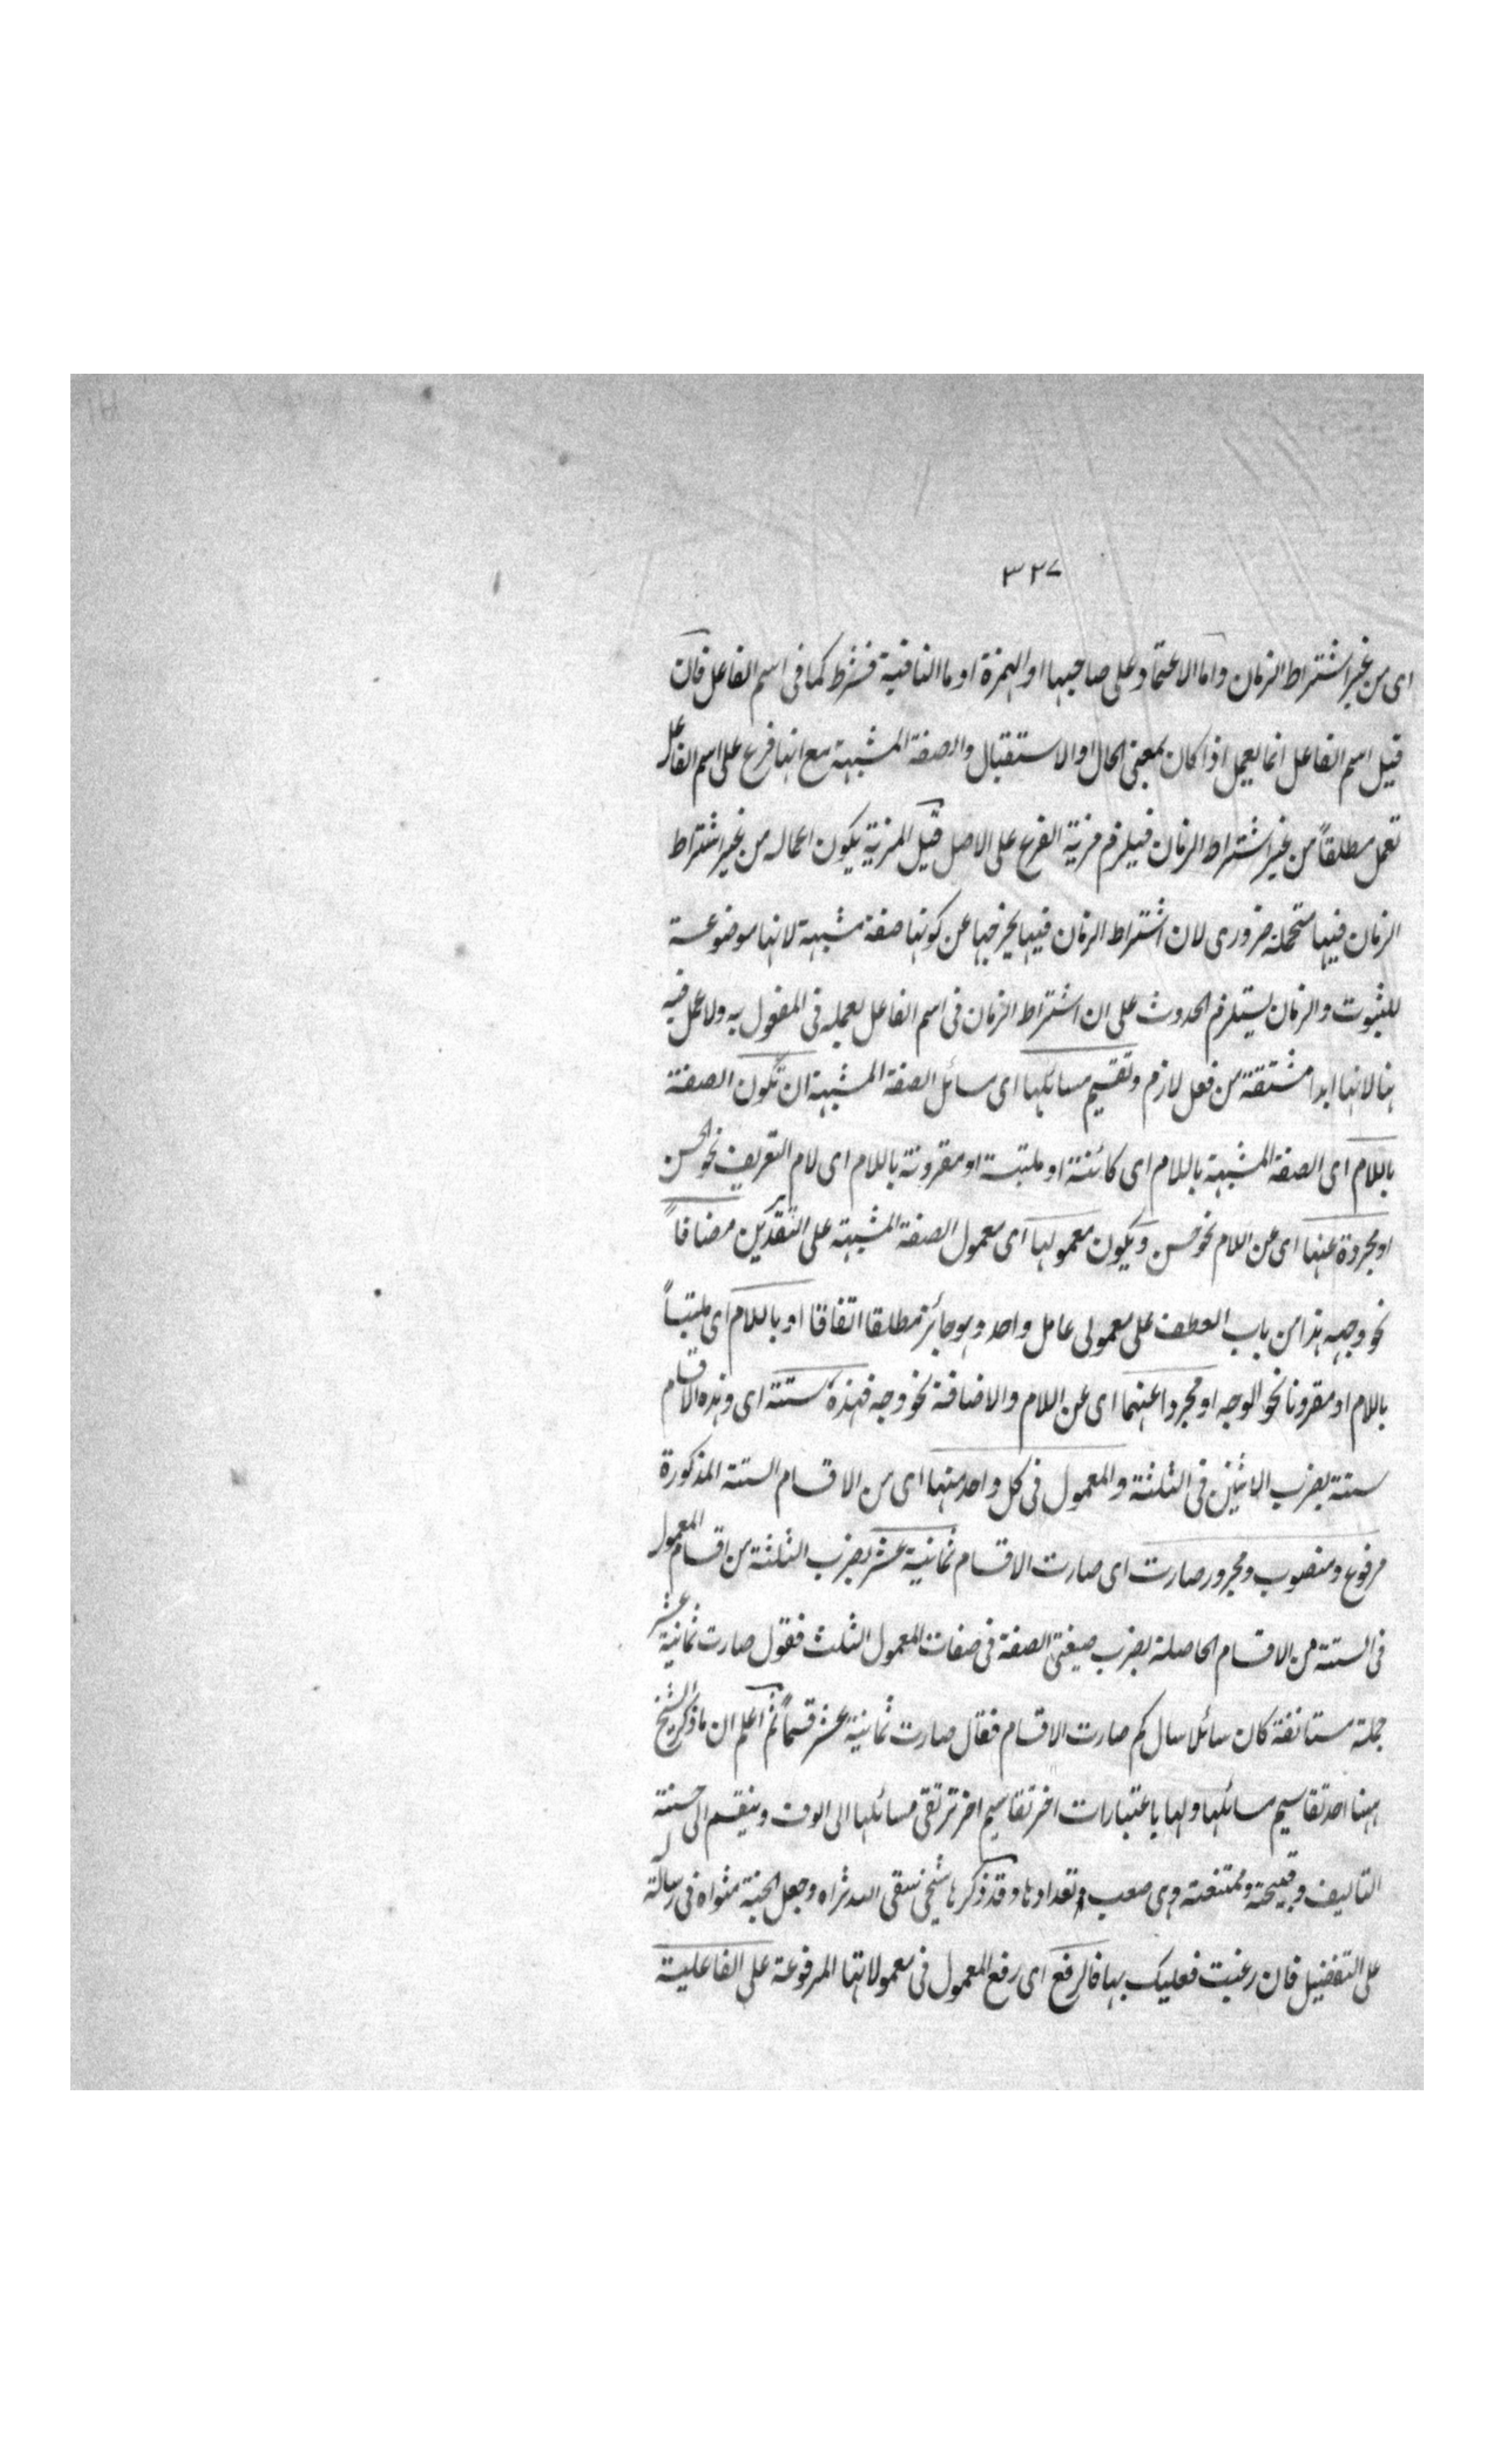 ٣٢٧
اى من غير اشتراط الزمان واما الاعتماد على صاحبها او الهمزة او ما النافية فشرط كما فى اسم الفاعل فان
قيل اسم الفاعل انما يعمل اذا كان بمعنى الحال او الاستقبال والصفة المشبهة مع انها فرع على اسم الفاعل
تعمل مطلقاً من غير اشتراط الزمان فيلزم مزية الفرع على الاصل قيل المزية يكون اعماله من غير اشتراط
الزمان فيها ضرورى لان اشتراط الزمان فيها يخرجها عن كونها صفة مشبهة لانها موضوعة
للثبوت والزمان يستلزم الحدوث على ان اشتراط الزمان فى اسم الفاعل لعمله فى المفعول به ولا عمل فيه
هنا لانها ابدا مشتقة من فعل لازم وتقسيم مسائلها اى مسائل الصفة المشبهة ان تكون الصفة
باللام اى الصفة المشبهة باللام اى كائنة او ملتبسة او مقرونة باللام اى لام التعريف نحو الحسن
او مجردة عنها اى عن اللام نحو حسن ويكون معمولها اى معمول الصفة المشبهة على التقديرين مضافاً
نحو وجهه هذا من باب العطف على معمولى عامل واحد وهو جائز مطلقا اتفاقا او باللام اى ملتبساً
باللام او مقرونا نحو الوجه او مجردا عنهما اى عن اللام والاضافة نحو وجه فهذه ستة اى وهذه الاقسام
ستة بضرب الاثنين فى الثلثة والمعمول فى كل واحد منها اى من الاقسام الستة المذكورة
مرفوع ومنصوب ومجرور صارت اى صارت الاقسام ثمانية عشر بضرب الثلثة من اقسام المعمول
فى الستة من الاقسام الحاصلة بضرب صيغتى الصفة فى صفات المعمول الثلث فقول صارت ثمانية عشر
جملة مستانفة كان سائلا سال كم صارت الاقسام فقال صارت ثمانية عشر قسماً ثم اعلم ان ما ذكره الشيخ
ههنا احد تقاسيم مسائلها ولها باعتبارات اخر تقاسيم اخر ترتقى مسائلها الى الوف وينقسم الى حسنة
التاليف وقبيحة وممتنعة وى صعب تعدادها وقد ذكرها شيخى سقى الله ثراه وجعل الجنة مثواه فى رسالة
على التفضيل فان رغبت فعليك بها فالرفع اى رفع المعمول فى معمولاتها المرفوعة على الفاعلية